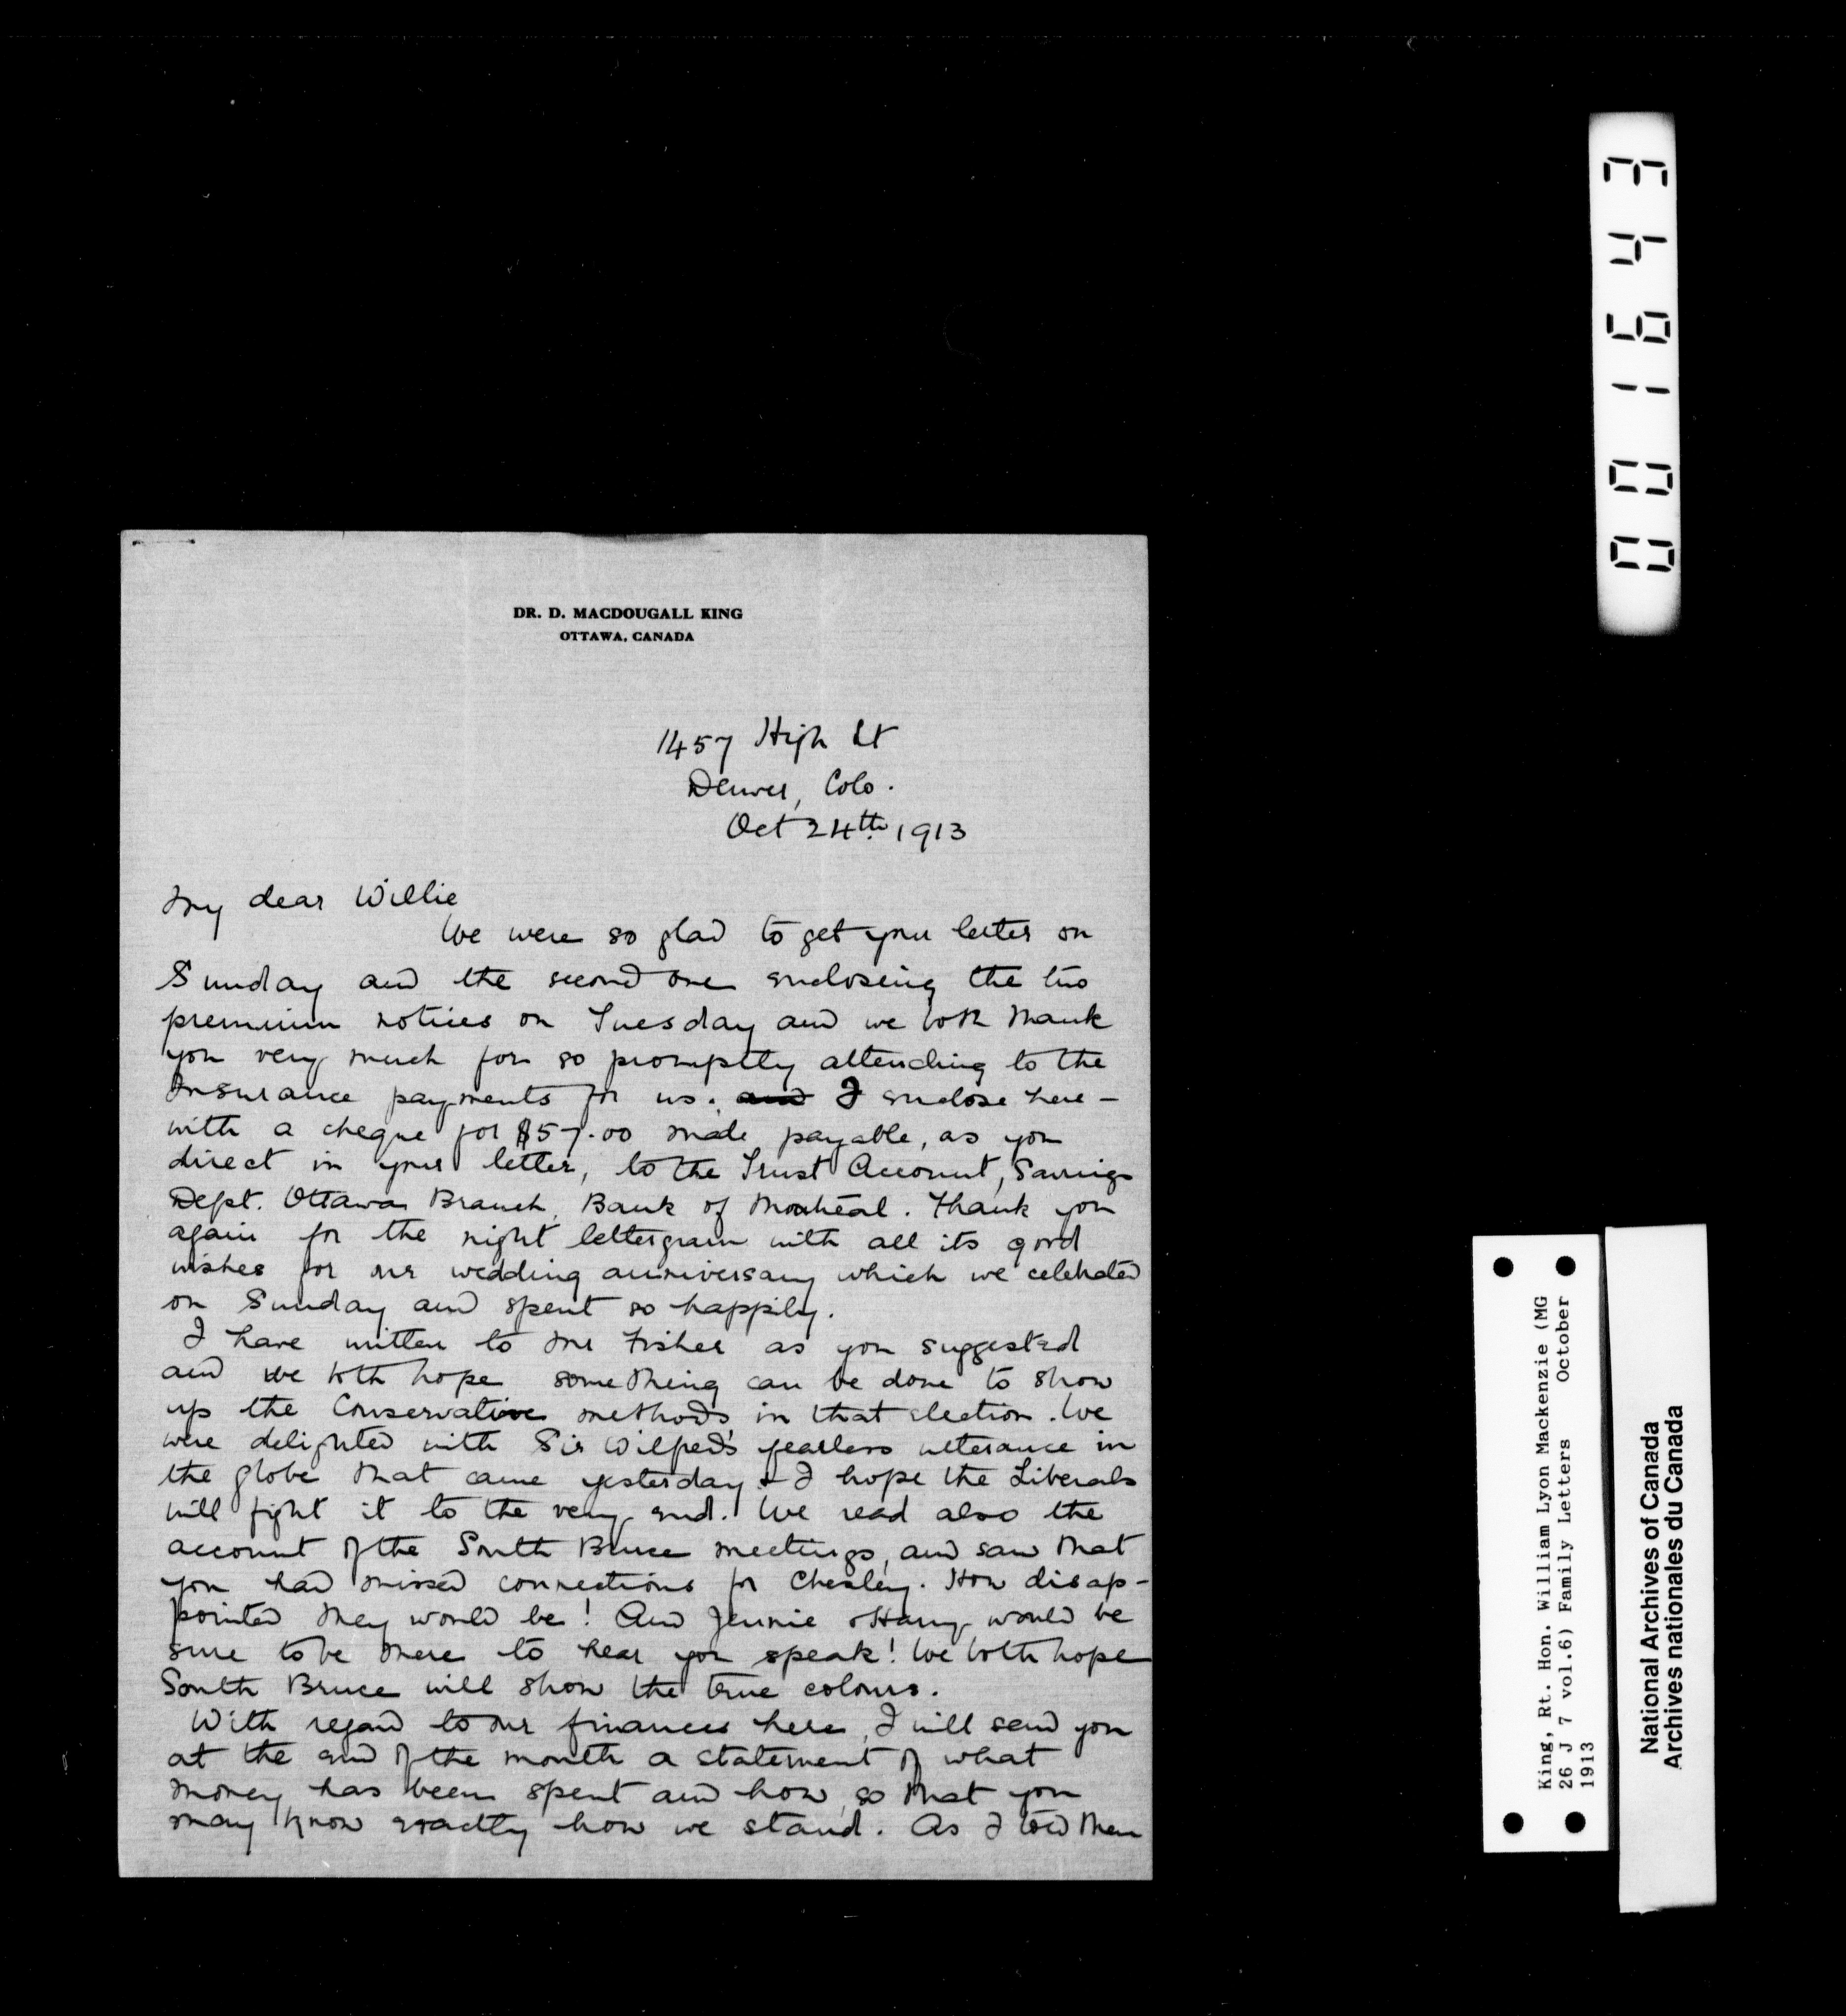 DR. D. MACDOUGALL KING
OTTAWA, CANADA
1457 High St
Denver, Colo.
Oct 24th 1913
My dear Willie
We were so glad to get your letter on
Sunday and the second one enclosing the two
premium notices on Tuesday and we both thank
you very much for so promptly attending to the
Insurance payments for us. and I enclose here-
with a cheque for $57.00 made payable, as you
direct in your letter, to the Trust Account, Savings
Dept. Ottawa Branch, Bank of Montreal. Thank you
again for the night lettergram with all its good
wishes for our wedding anniversary which we celebrated
on Sunday and spent so happily.
I have written to Mr Fisher as you suggested
and we both hope something can be done to show
up the Conservative methods in that election. We
were delighted with Sir Wilfred's fearless utterance in
the globe that came yesterday & I hope the Liberals
will fight it to the very end. We read also the
account of the South Bruce meetings, and saw that
you had missed connections for Chesley. How disap-
pointed they would be! And Jennie & Harry would be
sure to be there to hear you speak! We both hope
South Bruce will show the true colours.
With regard to our finances here, I will send you
at the end of the month a statement of what
money has been spent and how, so that you
may know exactly how we stand. As I told them
0 0 1 6 4 3
King, Rt. Hon. William Lyon Mackenzie (MG
26 J 7 vol.6) Family Letters October
1913
National Archives of Canada
Archives nationales du Canada